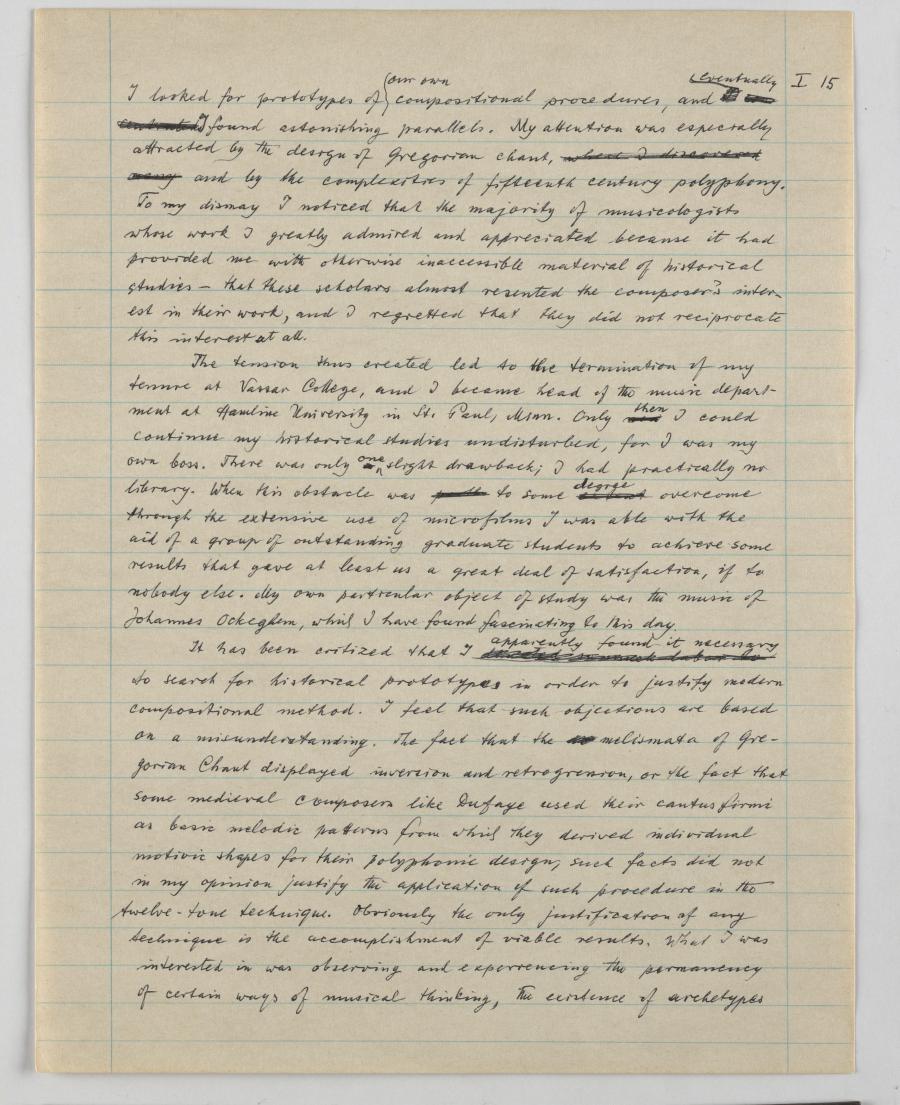 I 15
I looked for prototypes of our own compositional procedures, and eventually
I found astonishing parallels. My attention was especially
attracted by the design of Gregorian chant, where I discovered
many and by the complexities of fifteenth century polyphony.
To my dismay I noticed that the majority of musicologists
whose work I greatly admired and appreciated because it had
provided me with otherwise inaccessible material of historical
studies – that these scholars almost resented the composer's inter-
est in their work, and I regretted that they did not reciprocate
this interest at all.
The tension thus created led to the termination of my
tenure at Vassar College, and I became head of the music depart-
ment at Hamline University in St. Paul, Minn. Only then I could
continue my historical studies undisturbed, for I was my
own boss. There was only one slight drawback; I had practically no
library. When this obstacle was to some degree overcome
through the extensive use of microfilms I was able with the
aid of a group of outstanding graduate students to achieve some
results that gave at least us a great deal of satisfaction, if to
nobody else. My own particular object of study was the music of
Johannes Ockeghem, which I have found fascinating to this day.
It has been critized that I apparently found it necessary
to search for historical prototypes in order to justify modern
compositional method. I feel that such objections are based
on a misunderstanding. The fact that the melismata of Gre-
gorian Chant displayed inversion and retrogression, or the fact that
some medieval composers like Dufaye used their cantus firmi
as basic melodic patterns from which they derived individual
motivic shapes for their polyphonic design, such facts did not
in my opinion justify the application of such procedure in the
twelve-tone technique. Obviously the only justification of any
technique is the accomplishment of viable results. What I was
interested in was observing and experiencing the permanency
of certain ways of musical thinking, the existence of archetypes